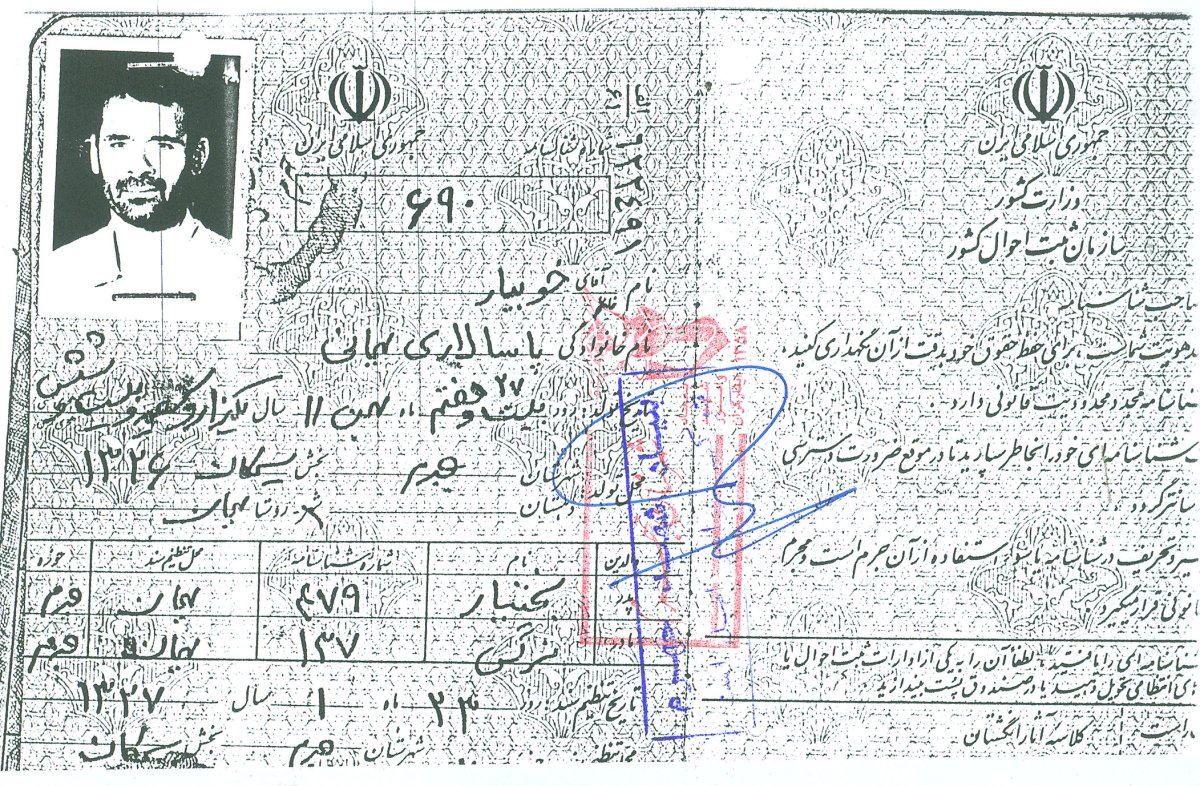 جمهوری اسلامی ایران
وزارت کشور
سازمان ثبت احوال کشور
صاحب شناسنامه
هویت شماست، برای حفظ حقوق خود بدقت از آن نگهداری کنید.
شناسنامه محدودیت قانونی دارد.
شناسنامه‌ای خود را بخاطر بسپارید تا در موقع ضرورت دسترسی
گردد
شناسنامه یا سوء استفاده از آن جرم است و مجرم
قانونی قرار میگیرد
شناسنامه‌ای را یافتید، لطفا آن را به یکی از ادارات ثبت احوال یا
انتظامی تحویل دهید یا در صندوق پست بیندازید
کلاسه آثار انگشتان
جمهوری اسلامی ایران
شماره شناسنامه
الف
۶۱
۶۹۰
نام آقای خوبیار
نام خانوادگی پاسالاری بهجانی
تاریخ تولد: روز بیست و هفتم ۲۷ ماه بهمن ۱۱ سال یکهزار و سیصد و بیست و شش
محل تولد شهرستان جهرم بخش سیمکان ۱۳۲۶
دهستان روستا بهجان
والدین نام شماره شناسنامه محل تنظیم سند حوزه
پدر بختیار ۴۷۹ بهجان جهرم
مادر نرگس ۱۳۷ بهجان جهرم
تاریخ تنظیم سند: روز ۲۳ ماه ۱ سال ۱۳۲۷
شهرستان جهرم بخش سیمکان